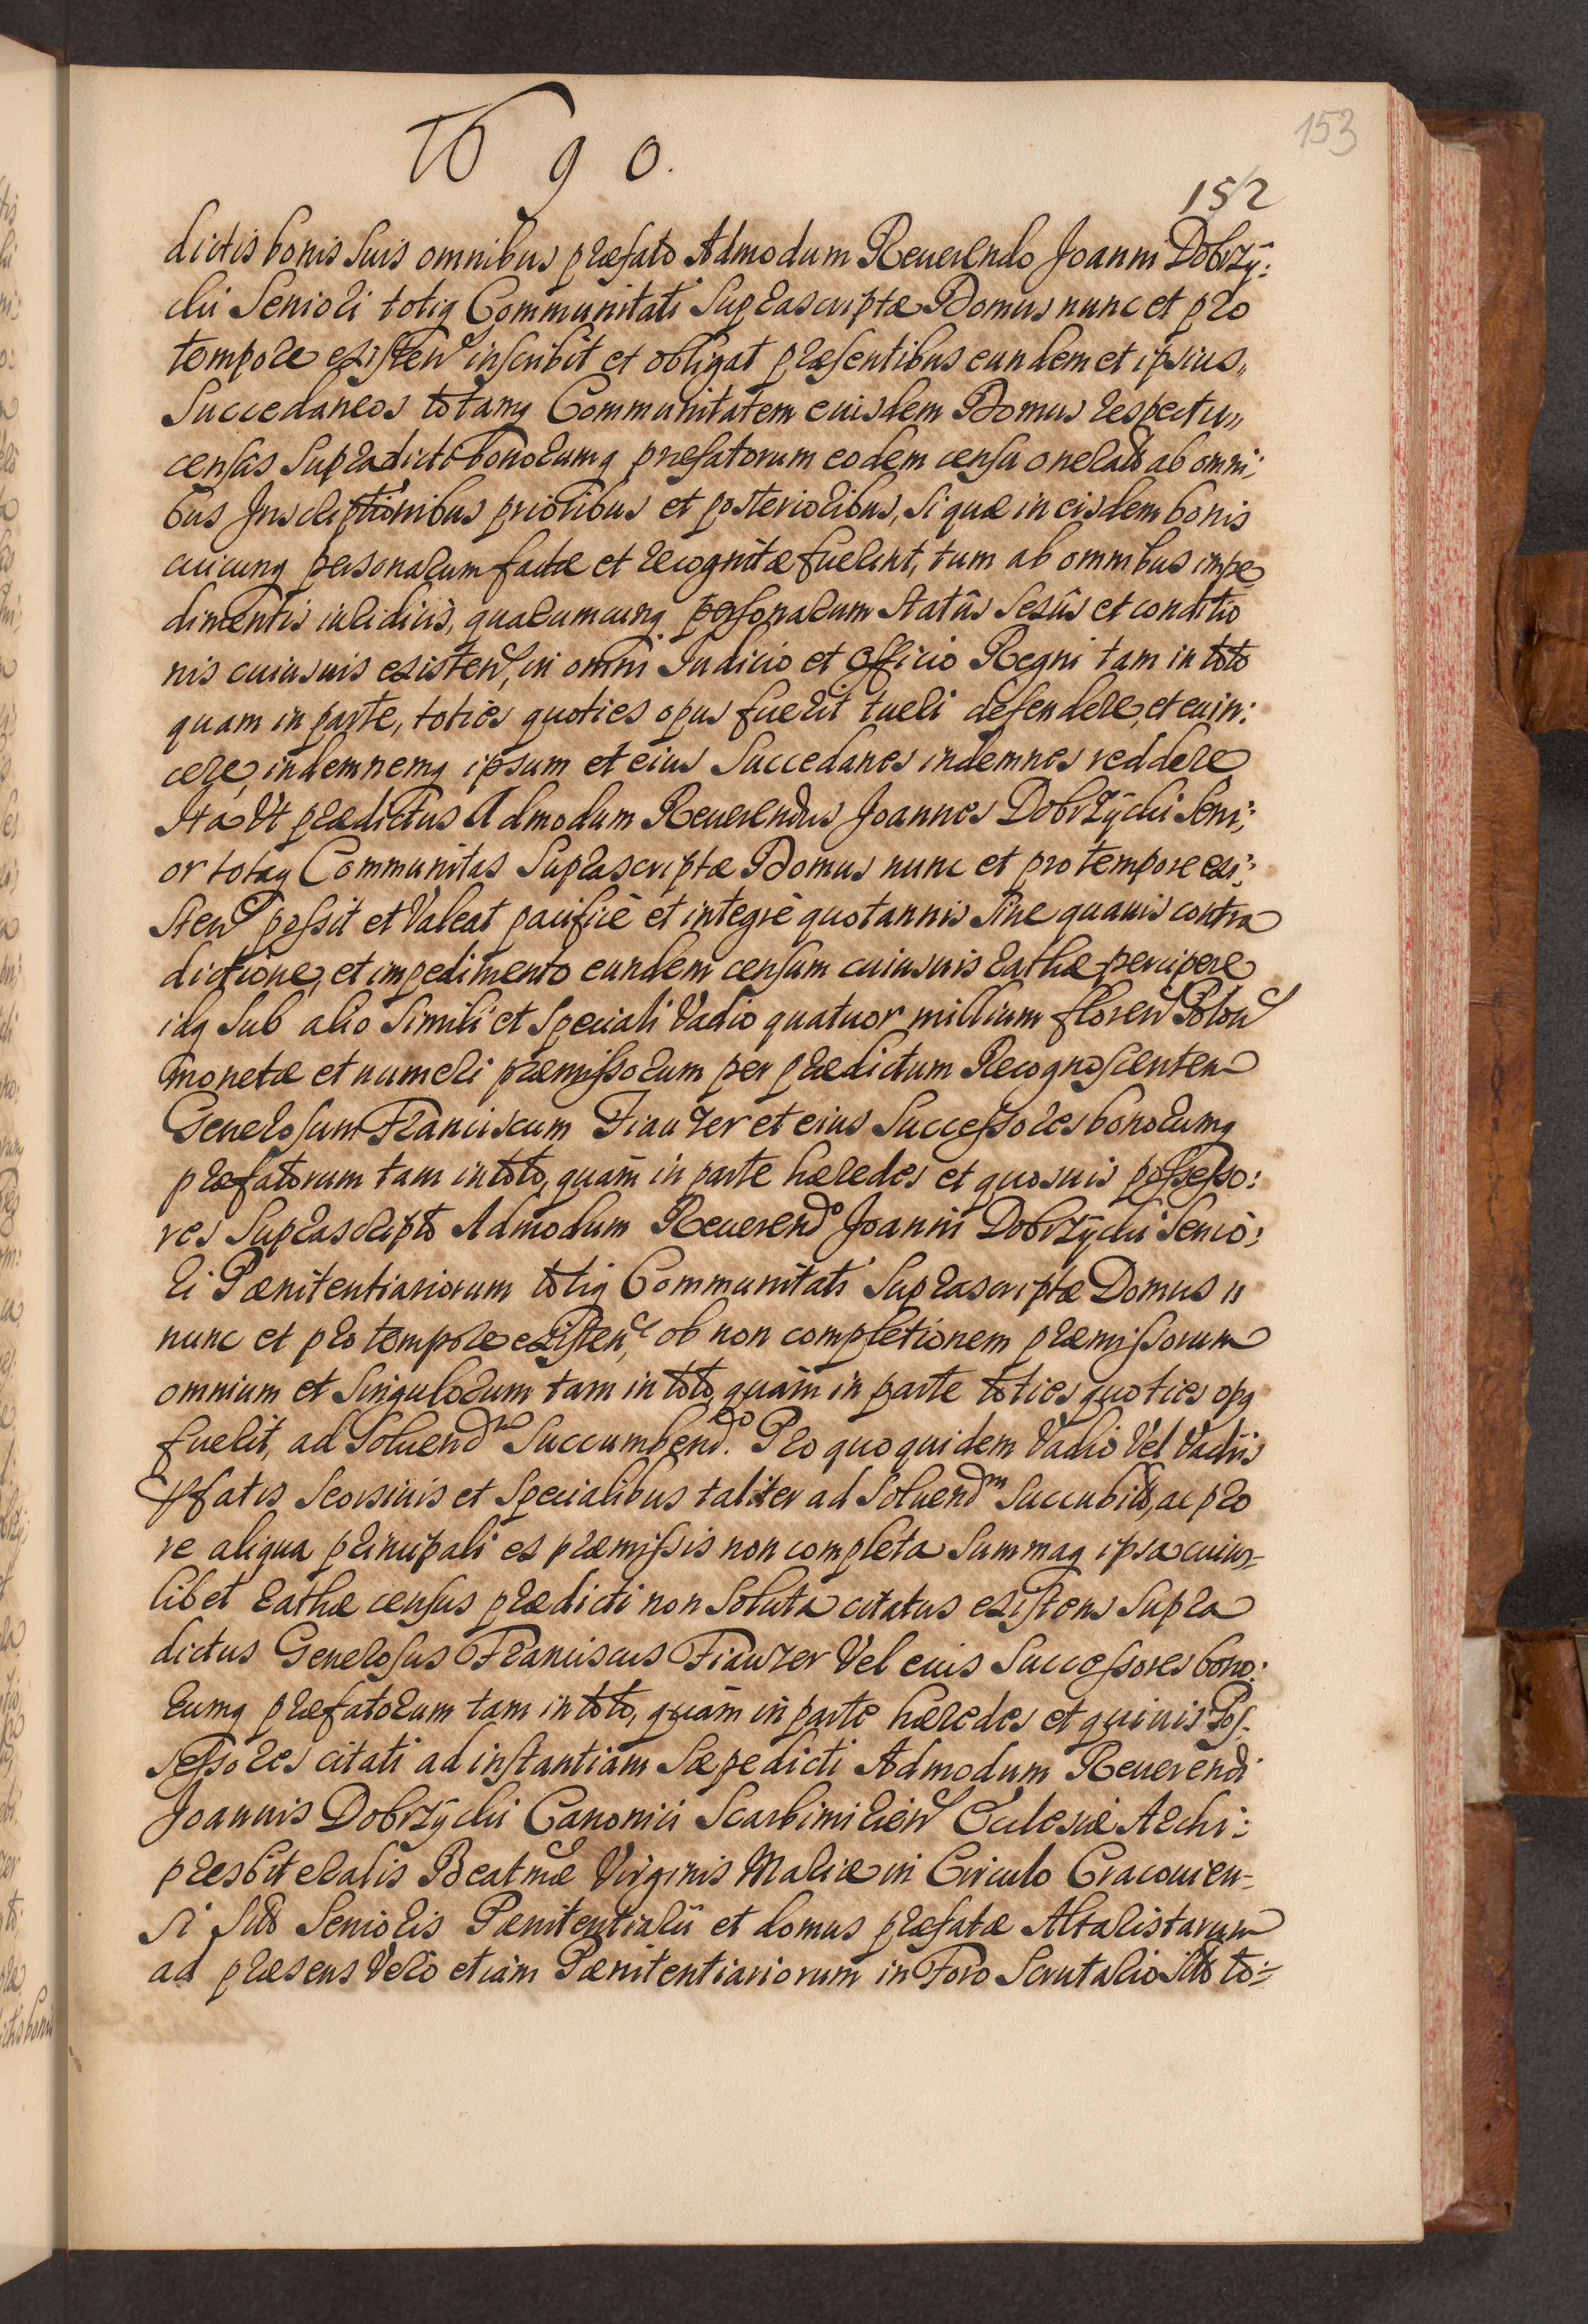 1690.
153
152
dictis bonis suis omnibus præfato Admodum Reuerendo Joanni Dobrzy:
cki Seniori totiq Communitati Suprascriptæ Domus nunc et pro
tempore existen inscribit et obligat præsentibus eundem et ipsius,,
Succedaneos totamq Communitatem eiusdem Domus respectu,,
censûs supradicti bonorumq præfatorum eodem censu onerato ab omni:
bus Inscriptionibus prioribus et posterioribus, si quæ in eisdem bonis
cuicunq personarum factæ et recognitæ fuerint, tum ab omnibus impe
dimentis iuridicis, quarumcunq personarum statûs sexûs et conditio
nis cuiusuis existen, in omni Iudicio et Officio Regni tam in toto
quam in parte, toties quoties opus fuerit tueri defendere, et euin:
cere, indemnemq ipsum et eius Succedanes indemnes reddere
Ita Vt prædictus Admodum Reuerendus Joannes Dobrzycki Seni:
or totaq Communitas Suprascriptæ Domus nunc et pro tempore exi:
sten possit et Valeat pacificè et integrè quotannis sine quauis contra
dictione, et impedimento eundem censum cuiusuis rathæ percipere
idq sub alio simili et speciali Vadio quatuor millium floren Polon
monetæ et numeri præmissorum per prædictum Recognoscentem
Generosum Franciscum Fiauzer et eius Successores bonorumq
præfatorum tam in toto, quam in parte hæredes et quosuis possesso:
res Suprascripto Admodum Reuerendo Joanni Dobrzycki Senio:
ri Pænitentiariorum totiq Communitati Suprascriptæ Domus ,,
nunc et pro tempore existen, ob non completionem præmissorum
omnium et singulorum tam in toto, quam in parte toties quoties opq
fuerit, ad soluendm Succumbendo. Pro quo quidem Vadio Vel Vadiis
pfatis seorsiuis et specialibus taliter ad soluendm succubito, ac pro
re aliqua principali ex præmissis non completa summaq ipsa cuius-
libet rathæ census prædicti non soluta citatus existens supra
dictus Generosus Franciscus Fiauzer Vel eius Successores bono:
rumq præfatorum tam in toto, quam in parte hæredes et quiuis Pos-
sessores citati ad instantiam sæpedicti Admodum Reuerendi
Joannis Dobrzycki Canonici Scarbimirien Ecclesiæ Archi:
presbiteralis Beatmæ Virginis Mariæ in Circulo Cracouien-
si sito Senioris Pænitentiarii et domus præfatæ Altaristarum
ad præsens Vero etiam Pænitentiariorum in Foro Scrutario sito to: